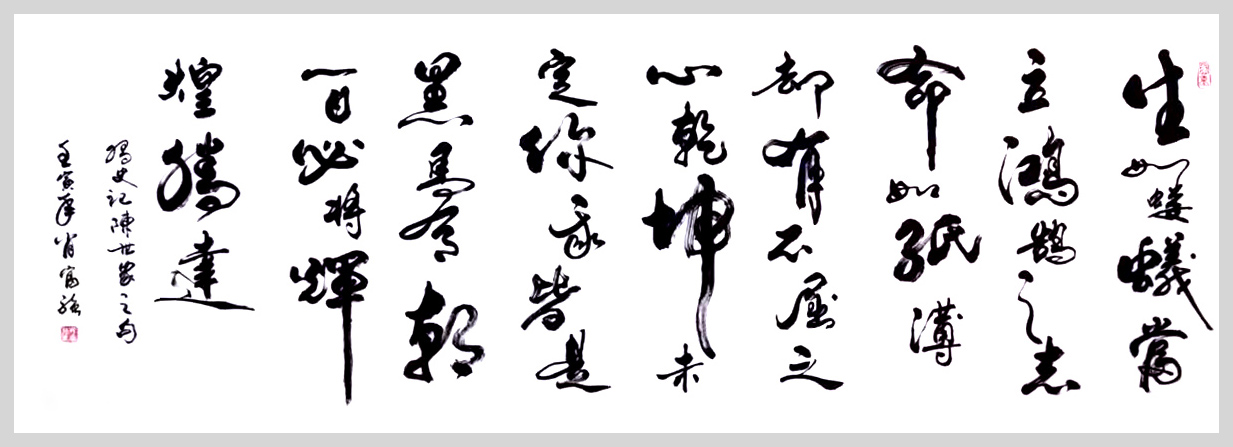 生如螻蟻當
立鴻鵠之志
命如紙薄
却有不屈之
心乾坤未
定你我皆是
黑馬有朝
一日必將輝
煌騰達
史記陳世家之句
壬寅年肖富強